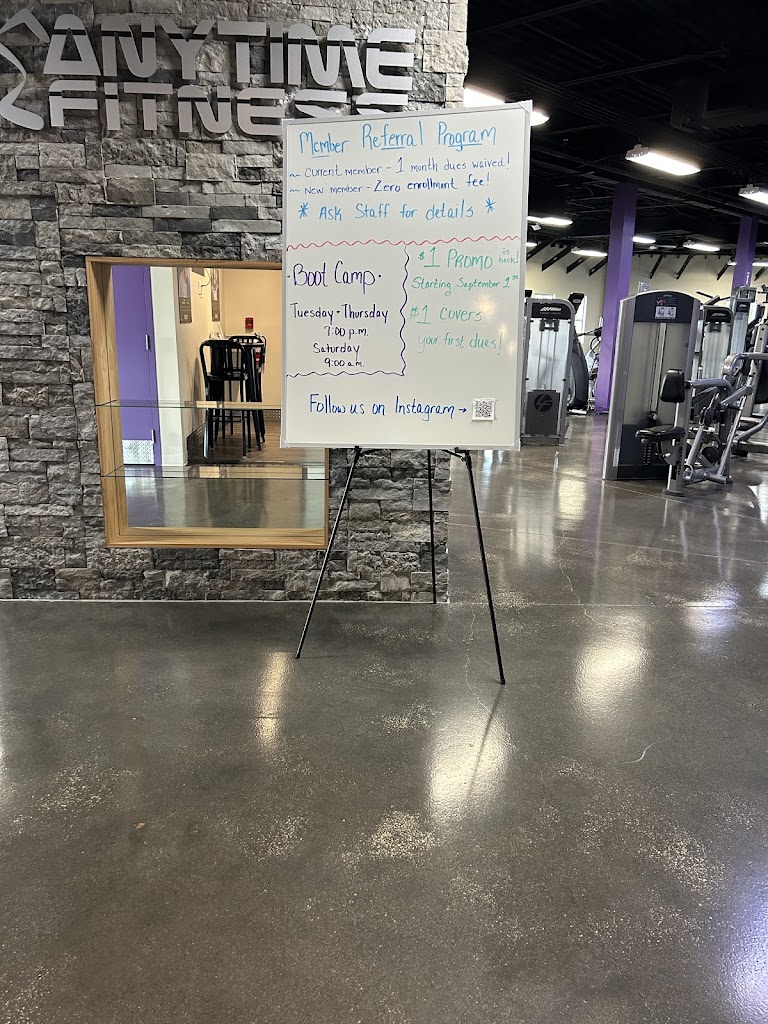 ANYTIME
FITNESS
Member Referral Program
~ Current member - 1 month dues waived!
~ New member - Zero enrollment fee!
* Ask Staff for details *
· Boot Camp ·
Tuesday + Thursday
7:00 p.m.
Saturday
9:00 a.m.
$1 Promo is back!
Starting September 1st
$1 covers
your first dues!
Follow us on Instagram →